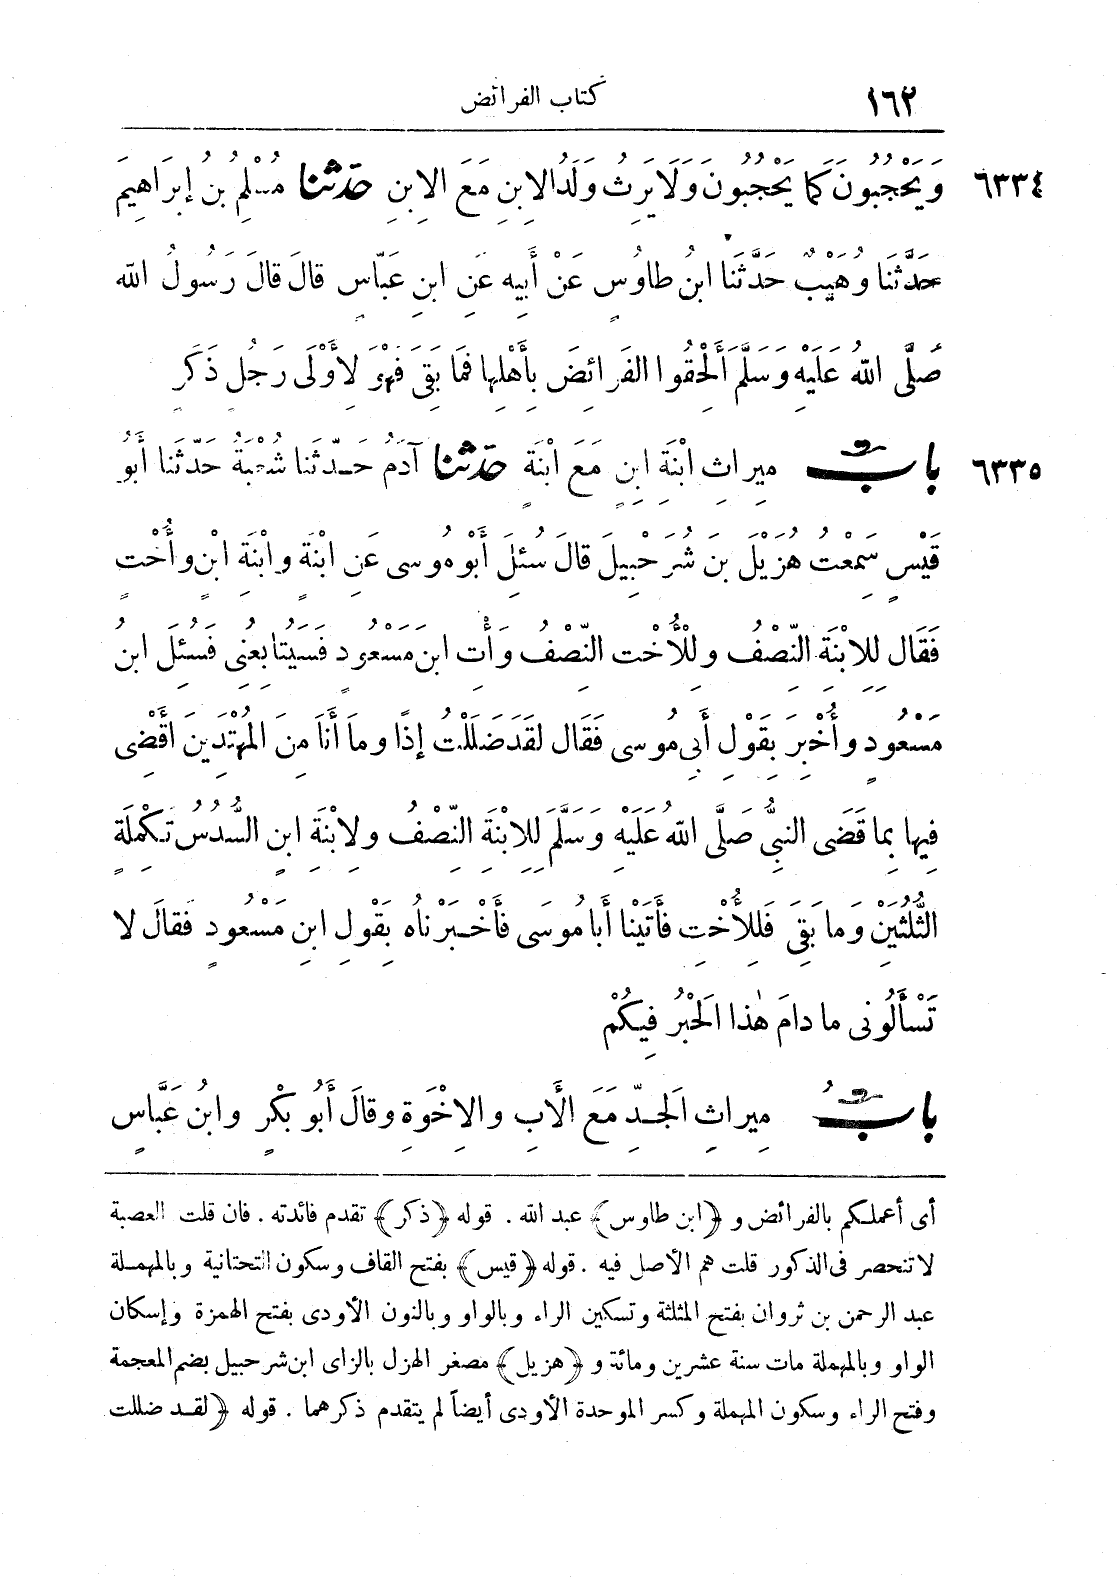 ١٦٢
كتاب الفرائض
٦٣٣٤
وَيَحْجُبُونَ كَمَا يَحْجُبُونَ وَلَا يَرِثُ وَلَدُ الِابْنِ مَعَ الِابْنِ حَدَّثَنَا مُسْلِمُ بنُ إبْرَاهِيمَ
حَدَّثَنَا وُهَيْبٌ حَدَّثَنَا ابنُ طاوُسٍ عَنْ أَبِيهِ عَنِ ابنِ عَبَّاسٍ قالَ قالَ رَسُولُ اللهِ
صَلَّى اللهُ عَلَيْهِ وَسَلَّمَ أَلْحِقُوا الفَرائضَ بِأَهْلِها فَمَا بَقِيَ فَهْوَ لِأَوْلَى رَجُلٍ ذَكَرٍ
٦٣٣٥
بابُ مِيراثِ ابْنَةِ ابنٍ مَعَ ابْنَةٍ حَدَّثَنَا آدَمُ حَدَّثَنا شُعْبَةُ حَدَّثَنا أَبُو
قَيْسٍ سَمِعْتُ هُزَيْلَ بنَ شُرَحْبِيلَ قالَ سُئِلَ أَبُو مُوسى عَنِ ابْنَةٍ وابْنَةِ ابْنٍ وأُخْتٍ
فَقَال لِلِابْنَةِ النِّصْفُ ولِلْأُخْتِ النِّصْفُ وَأْتِ ابنَ مَسْعُودٍ فَسَيُتابِعُنِي فَسُئِلَ ابنُ
مَسْعُودٍ وأُخْبِرَ بِقَوْلِ أَبِي مُوسى فَقَال لَقَدْ ضَلَلْتُ إِذًا وما أَنَا مِنَ المُهْتَدِينَ أَقْضِي
فِيها بِما قَضَى النبيُّ صَلَّى اللهُ عَلَيْهِ وَسَلَّمَ لِلِابْنَةِ النِّصْفُ ولِابْنَةِ ابنٍ السُّدُسُ تَكْمِلَةَ
الثُّلُثَيْنِ وَما بَقِيَ فَلِلْأُخْتِ فَأَتَيْنا أَبا مُوسَى فَأَخْبَرْناهُ بِقَوْلِ ابنِ مَسْعُودٍ فَقالَ لا
تَسْأَلُونِي ما دامَ هٰذا الحَبْرُ فِيكُمْ
بابُ مِيراثِ الجَدِّ مَعَ الْأَبِ والإِخْوَةِ وقالَ أَبُو بَكْرٍ وابنُ عَبَّاسٍ
أى أعملكم بالفرائض و ﴿ابن طاوس﴾ عبد الله . قوله ﴿ذكر﴾ تقدم فائدته . فان قلت العصبة
لا تنحصر فى الذكور قلت هم الأصل فيه . قوله ﴿قيس﴾ بفتح القاف وسكون التحتانية وبالمهملة
عبد الرحمن بن ثروان بفتح المثلثة وتسكين الراء وبالواو وبالنون الأودى بفتح الهمزة وإسكان
الواو وبالمهملة مات سنة عشرين ومائة و ﴿هزيل﴾ مصغر الهزل بالزاى ابن شرحبيل بضم المعجمة
وفتح الراء وسكون المهملة وكسر الموحدة الأودى أيضاً لم يتقدم ذكرهما . قوله ﴿لقد ضللت